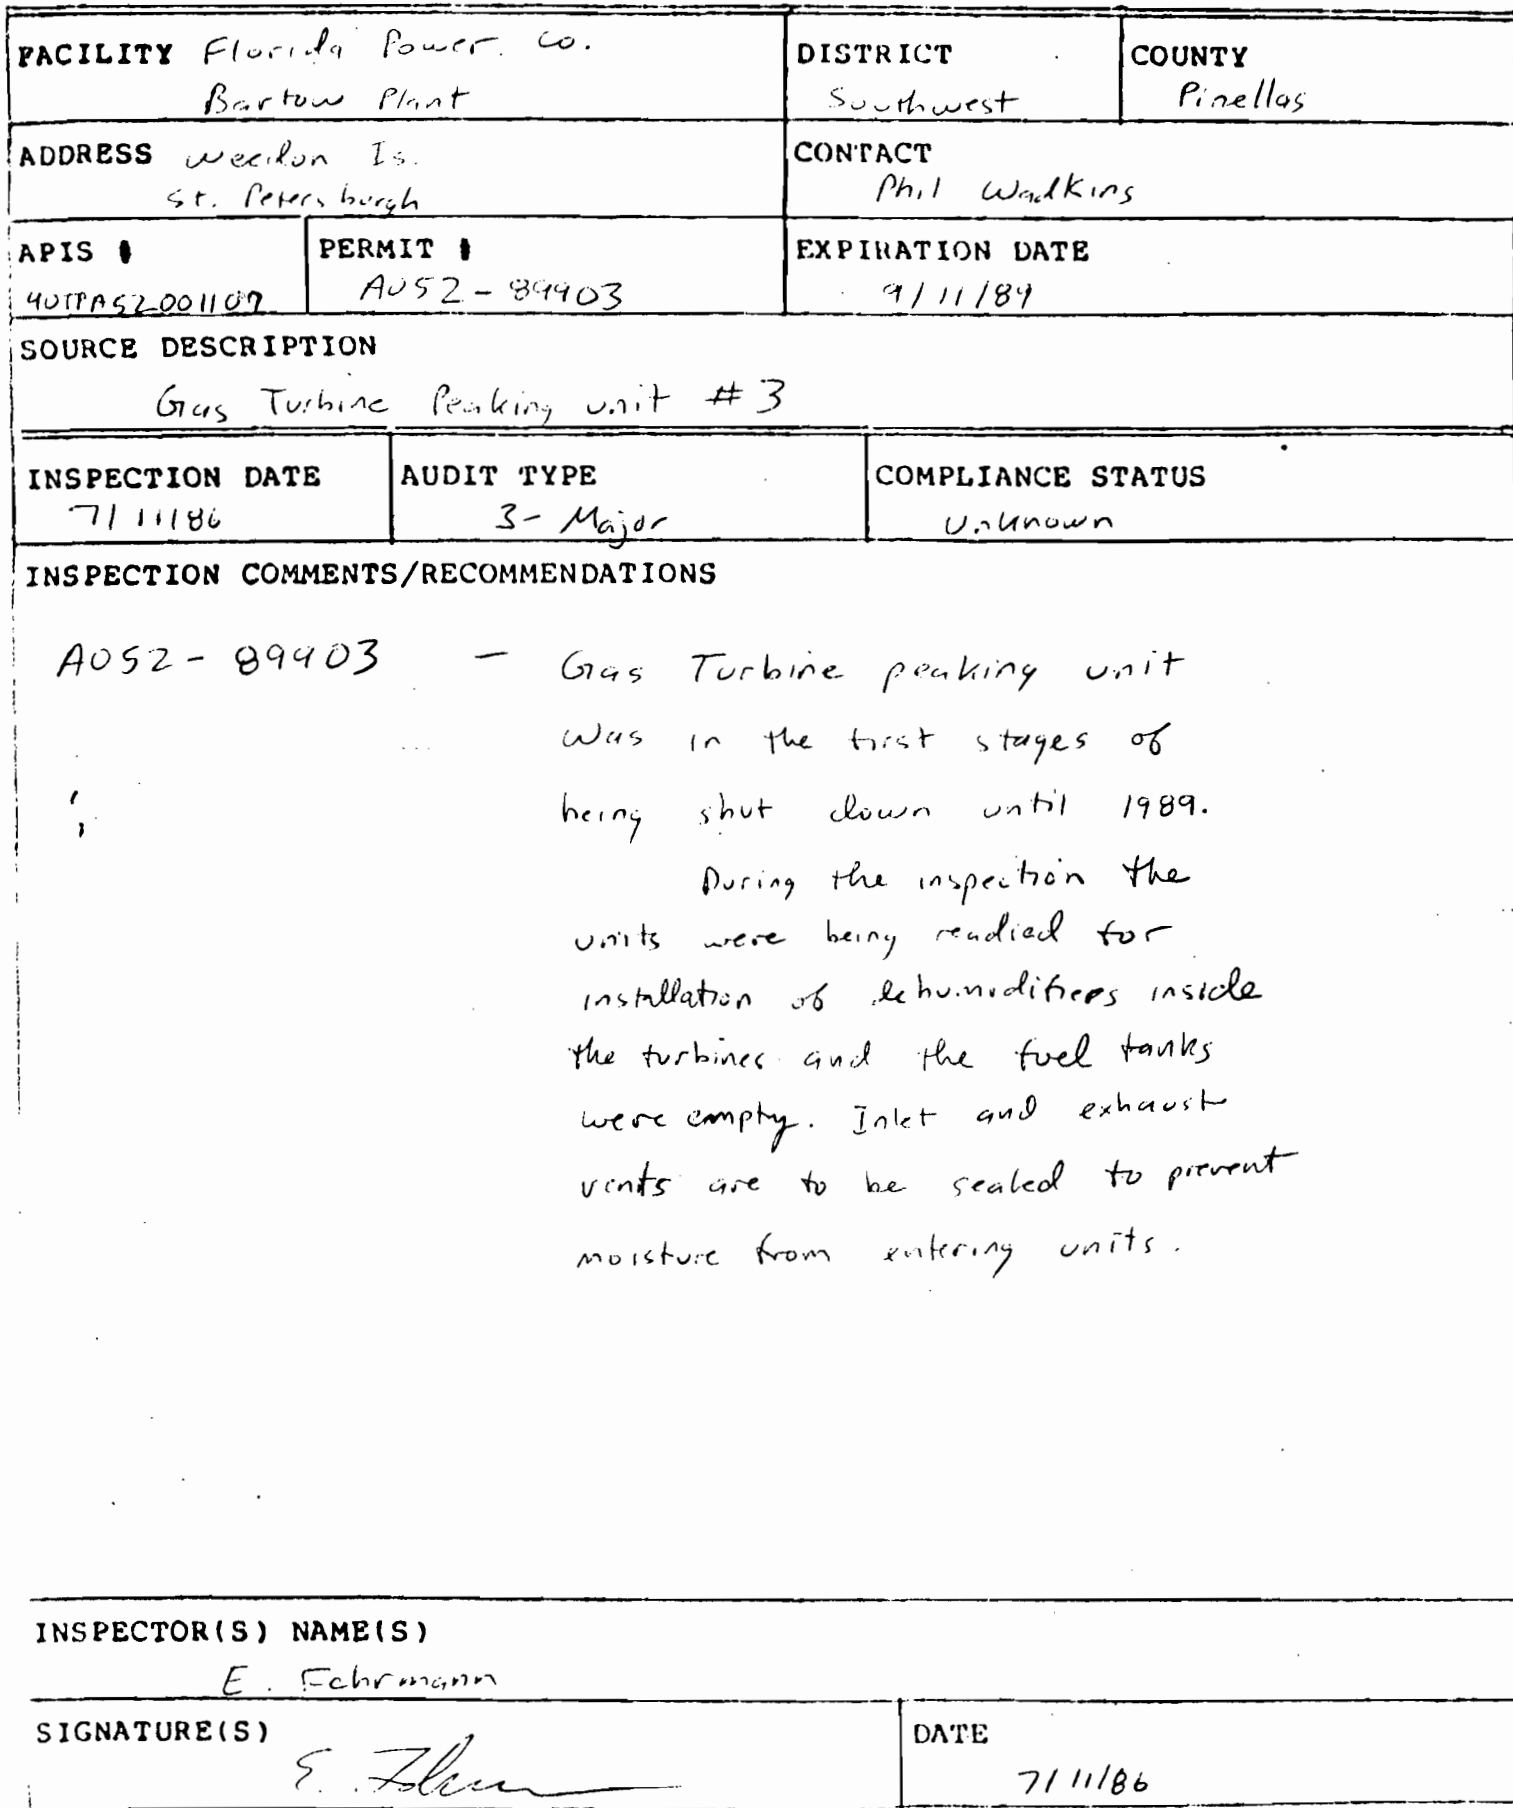 FACILITY Florida Power Co.
Bartow Plant
DISTRICT
Southwest
COUNTY
Pinellas
ADDRESS Weedon Is.
St. Petersburgh
CONTACT
Phil Wadkins
APIS #
40TPA52001107
PERMIT #
AO52-89903
EXPIRATION DATE
9/11/89
SOURCE DESCRIPTION
Gas Turbine Peaking unit #3
INSPECTION DATE
7/11/86
AUDIT TYPE
3- Major
COMPLIANCE STATUS
Unknown
INSPECTION COMMENTS/RECOMMENDATIONS
AO52-89903 - Gas Turbine peaking unit
was in the first stages of
being shut down until 1989.
During the inspection the
units were being readied for
installation of dehumidifiers inside
the turbines and the fuel tanks
were empty. Inlet and exhaust
vents are to be sealed to prevent
moisture from entering units.
INSPECTOR(S) NAME(S)
E. Fehrmann
SIGNATURE(S)
DATE
7/11/86